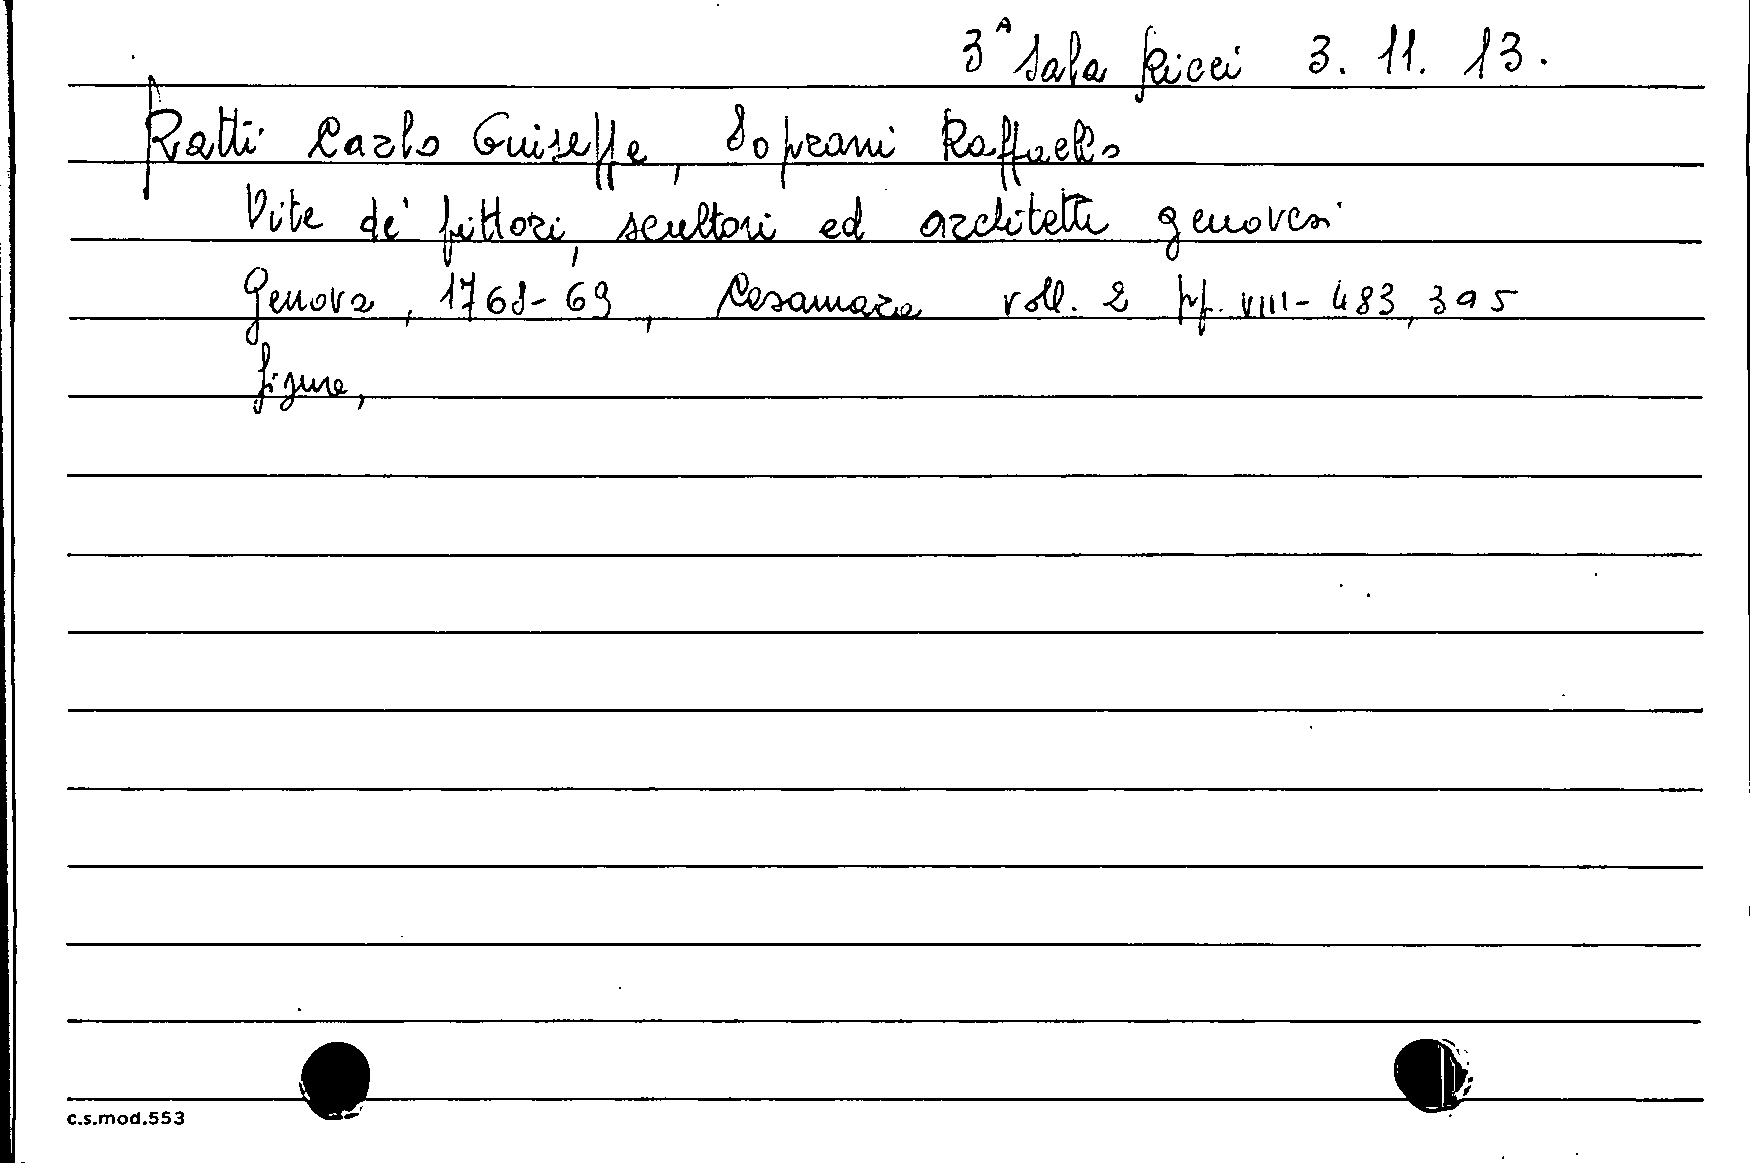 3ᴬ Sala Ricci 3. 11. 13.
Ratti Carlo Guiseppe, Soprani Raffaello
Vite de' pittori, scultori ed architetti genovesi
Genova, 1768-69, Casamara voll. 2 pp. VIII-483, 395
figure,
c.s.mod.553